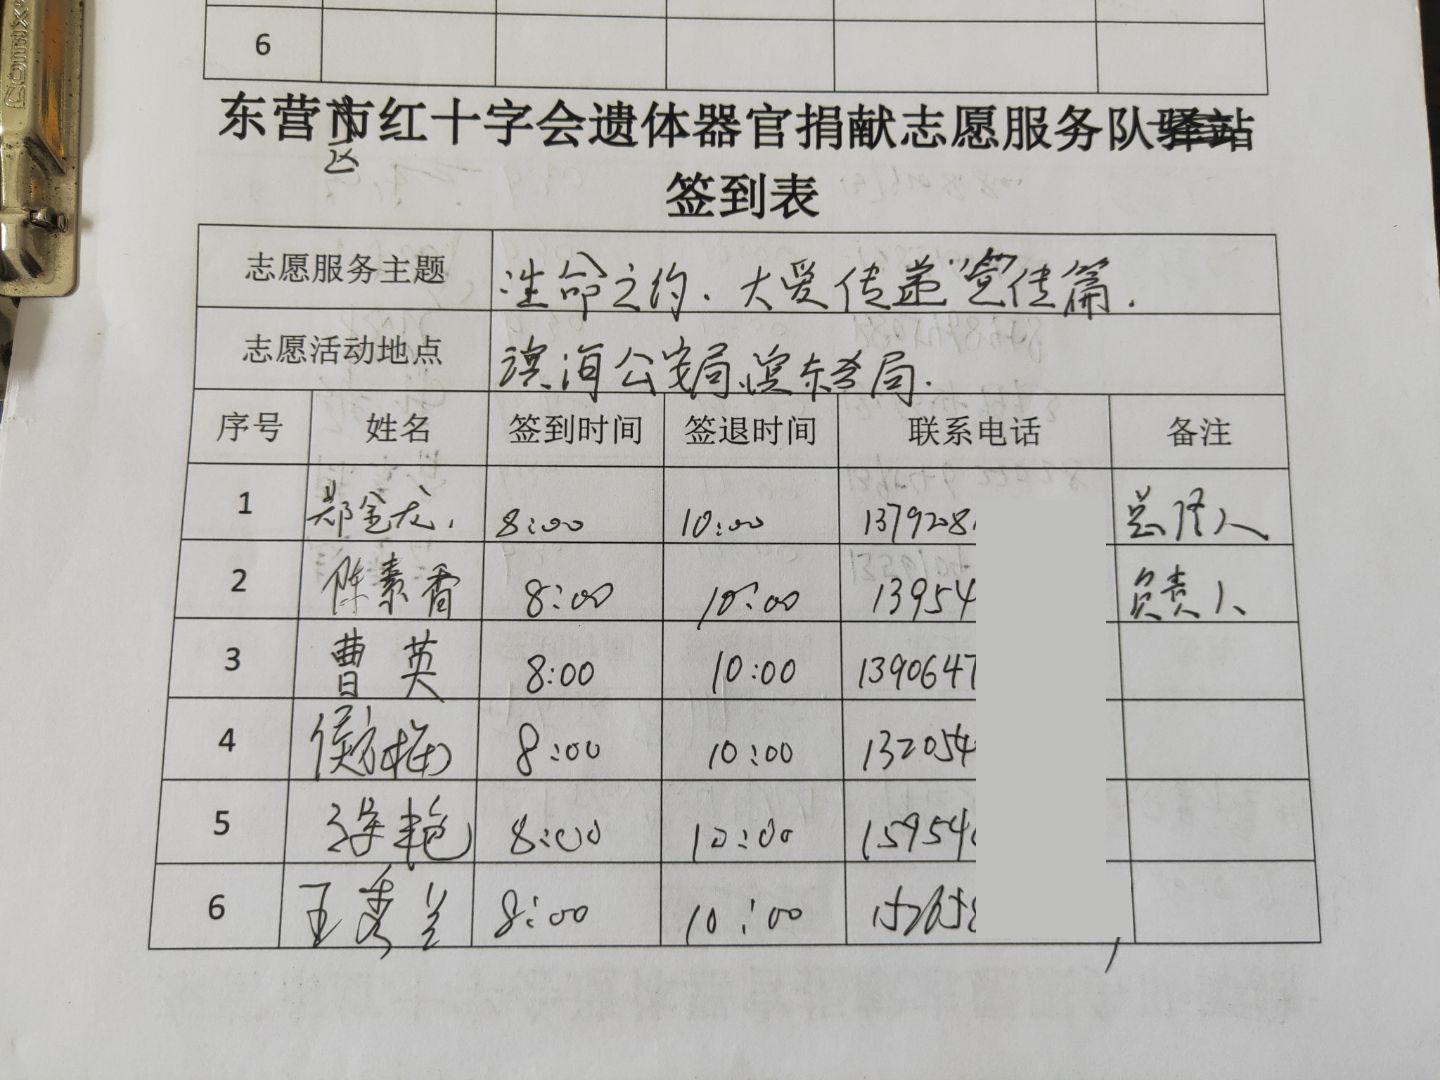 6
东营市红十字会遗体器官捐献志愿服务队驿站
区
签到表
志愿服务主题 生命之约.大爱传递"宣传篇.
志愿活动地点 滨海公安局.滨东分局.
序号 姓名 签到时间 签退时间 联系电话 备注
1 郑金龙. 8:00 10:00 1379208 总经人
2 陈素香 8:00 10:00 13954 负责人
3 曹英 8:00 10:00 1390647
4 8:00 10:00 132054
5 徐艳 8:00 10:00 159540
6 王秀兰 8:00 10:00 152658